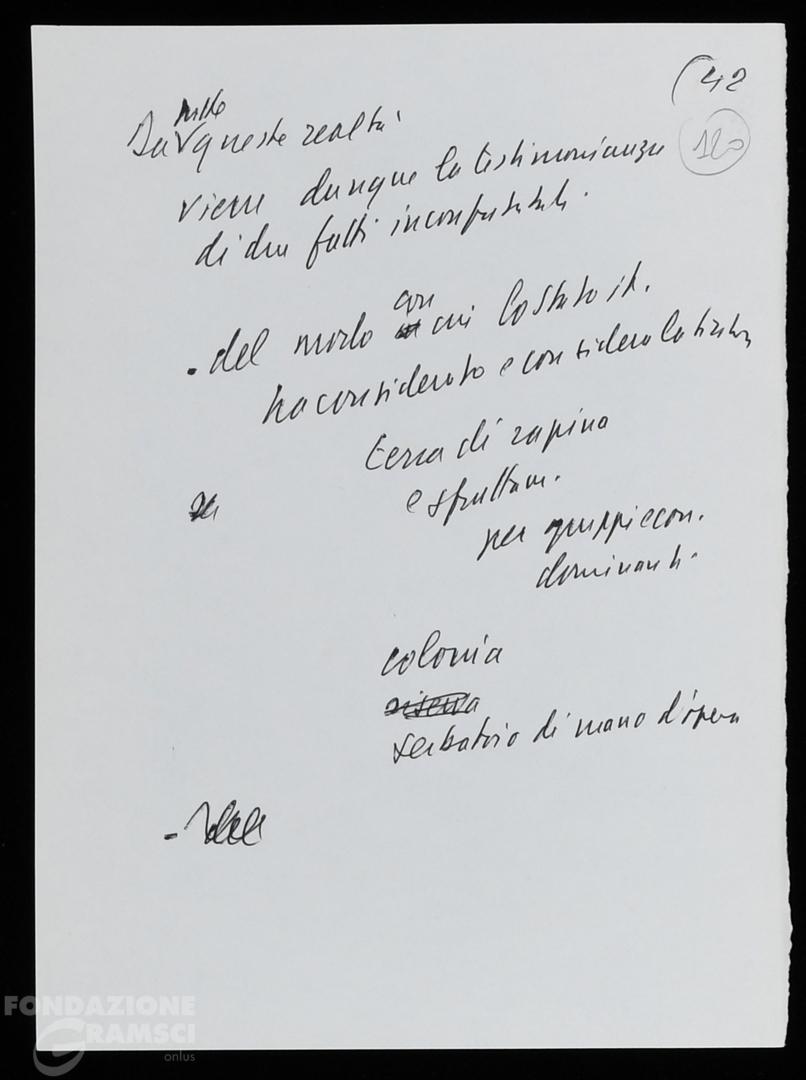 (42
120
Da tutte queste realtà
viene dunque la testimonianza
di due fatti inconfutabili.
• del modo con cui lo Stato it.
ha considerato e considera la
terra di rapina
e sfruttam.
per gruppi econ.
dominanti
colonia
riserva
serbatoio di mano d'opera
FONDAZIONE
GRAMSCI
onlus